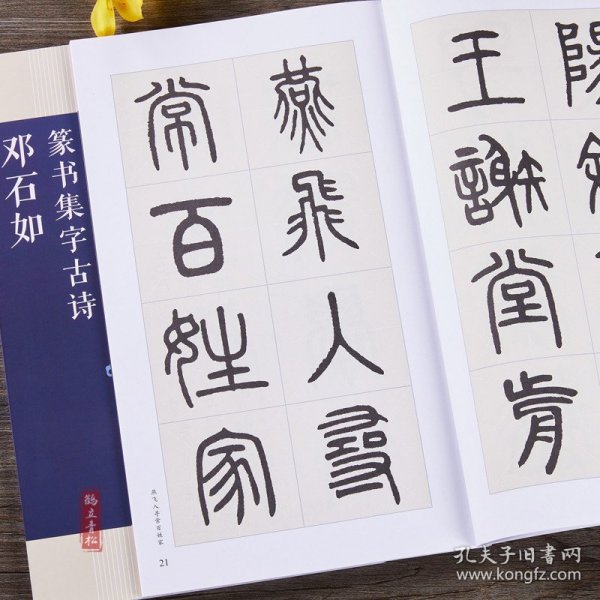 邓石如
篆书集字古诗
鹤立青松
王謝堂前
燕飛入尋
常百姓家
燕飞入寻常百姓家
21
孔夫子旧书网
www.kongfz.com